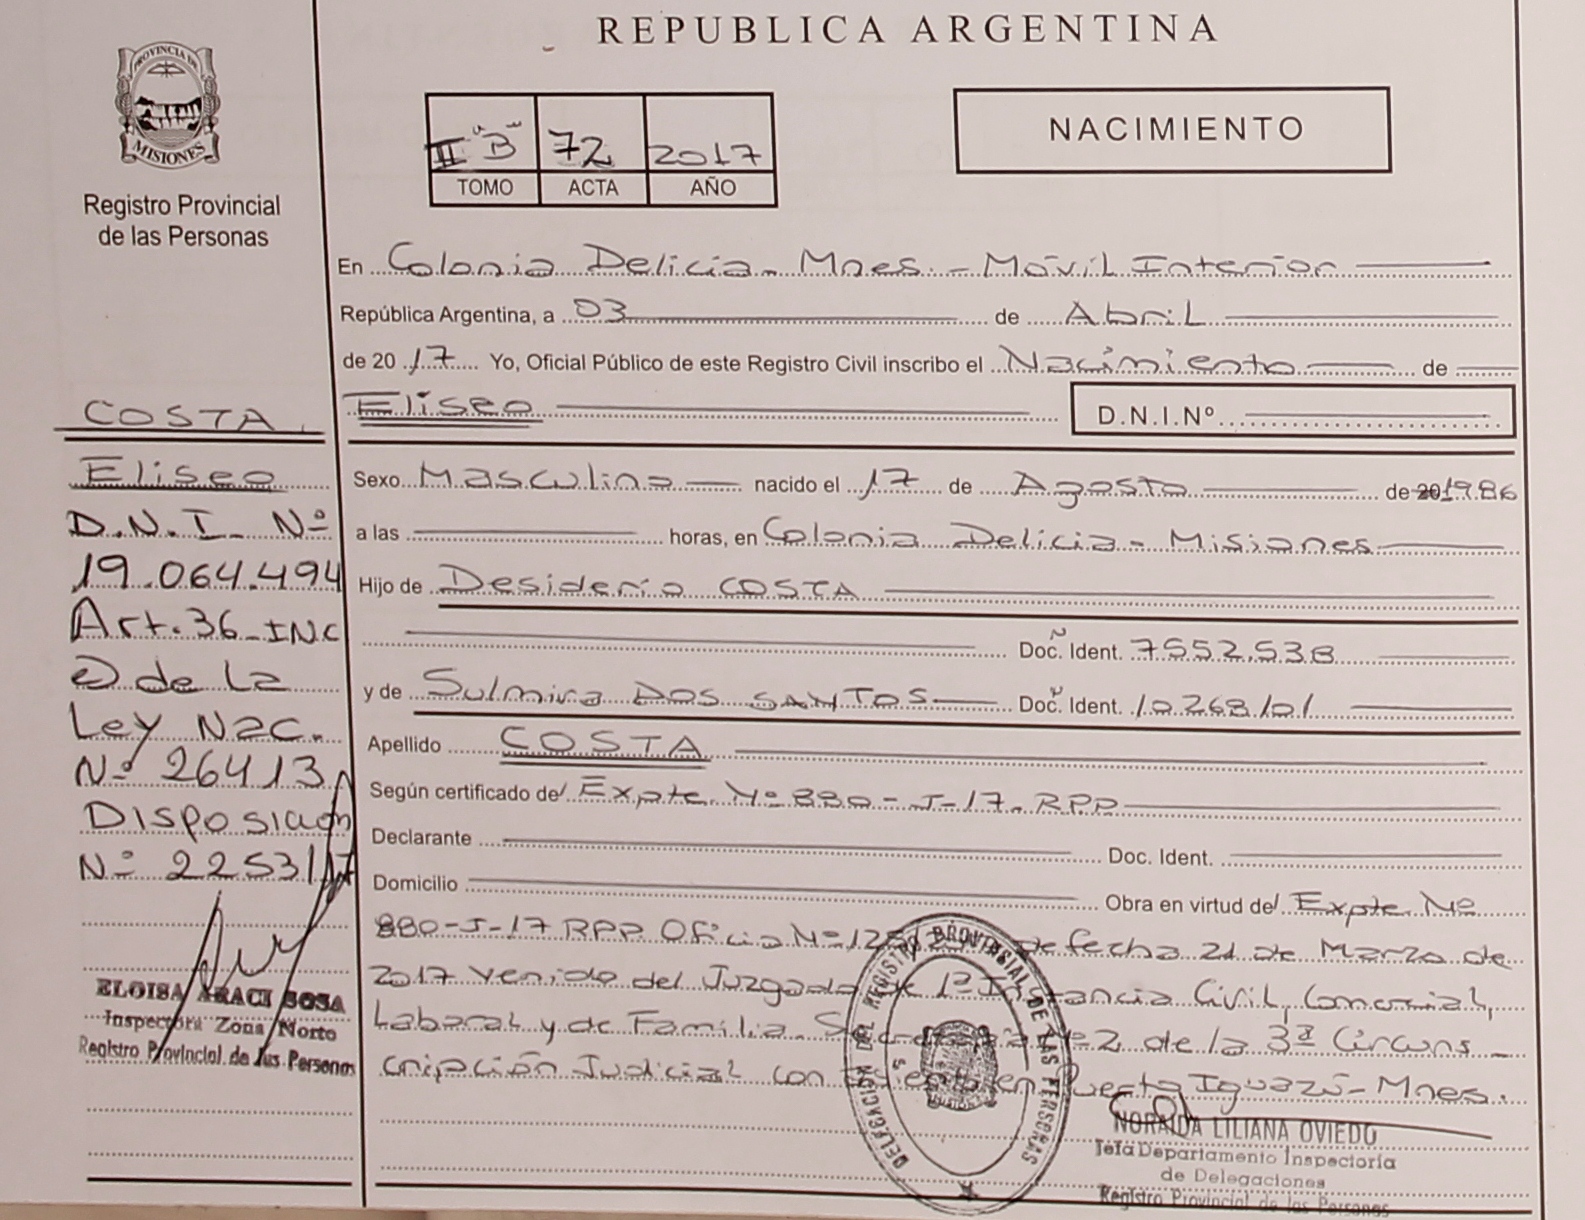 REPUBLICA ARGENTINA
PROVINCIA DE
MISIONES
Registro Provincial
de las Personas
II "B" 72 2017
TOMO ACTA AÑO
NACIMIENTO
En Colonia Delicia - Mnes. - Móvil Interior
República Argentina, a 03 de Abril
de 2017 Yo, Oficial Público de este Registro Civil inscribo el Nacimiento de
Eliseo
D.N.I.Nº
Sexo Masculino nacido el 17 de Agosto de 20 1986
a las horas, en Colonia Delicia - Misiones
Hijo de Desiderio COSTA
Doc. Ident. 7552.538
y de Sulmira DOS SANTOS Doc. Ident. 10.268.101
Apellido COSTA
Según certificado de Expte. Nº 880-J-17. RPP
Declarante Doc. Ident.
Domicilio Obra en virtud de Expte. Nº
880-J-17 RPP. Oficio Nº de fecha 21 de Marzo de
2017 venido del Juzgado de 1ª Instancia Civil, Comercial,
Laboral y de Familia. Secretaría Nº 2 de la 3ª Circuns-
cripción Judicial con asiento en Puerto Iguazú - Mnes.
COSTA
Eliseo
D.N.I. Nº
19.064.494
Art. 36 - INC
de la
Ley Nac.
Nº 26413
Disposición
Nº 2253/17
ELOISA ARACI SOSA
Inspectora Zona Norte
Registro Provincial de las Personas
DELEGACION DEL REGISTRO PROVINCIAL DE LAS PERSONAS
NORAIDA LILIANA OVIEDO
Jefa Departamento Inspectoría
de Delegaciones
Registro Provincial de las Personas